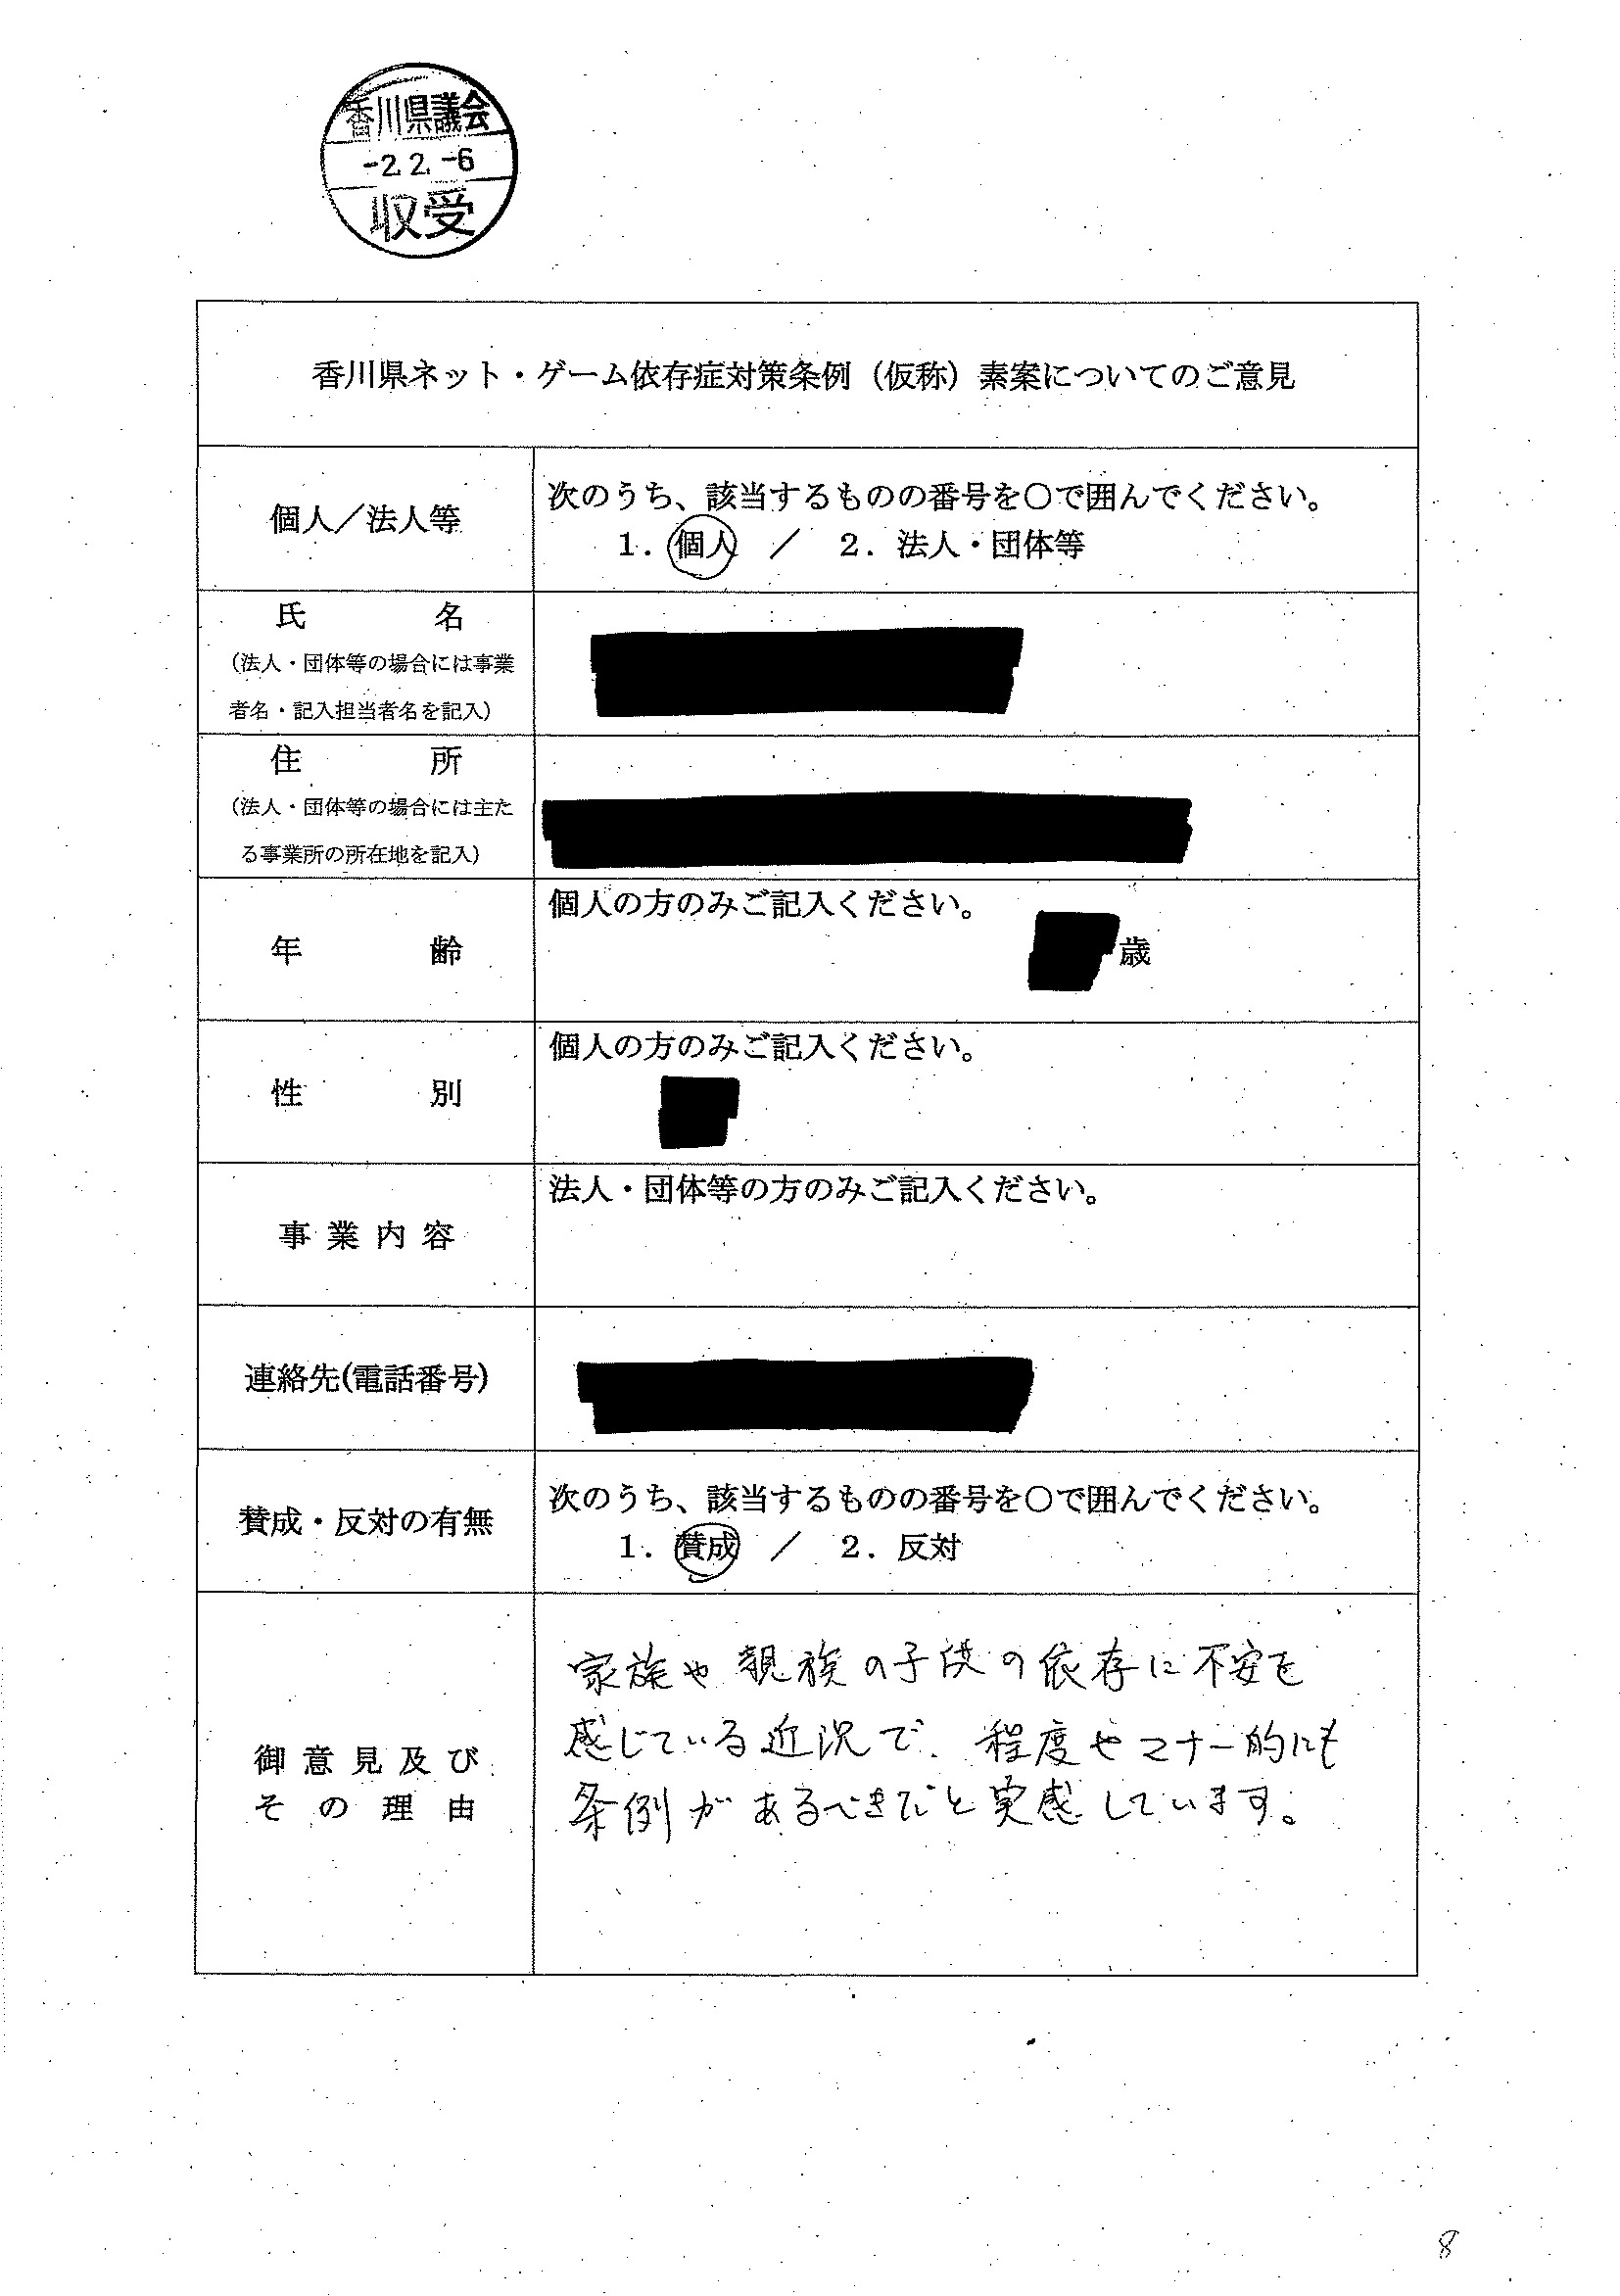 香川県議会
-2.2.-6
収受
香川県ネット・ゲーム依存症対策条例（仮称）素案についてのご意見
個人／法人等
次のうち、該当するものの番号を○で囲んでください。
1．個人 ／ 2．法人・団体等
氏 名
（法人・団体等の場合には事業
者名・記入担当者名を記入）
住 所
（法人・団体等の場合には主た
る事業所の所在地を記入）
年 齢
個人の方のみご記入ください。
歳
性 別
個人の方のみご記入ください。
事業内容
法人・団体等の方のみご記入ください。
連絡先(電話番号)
賛成・反対の有無
次のうち、該当するものの番号を○で囲んでください。
1．賛成 ／ 2．反対
御意見及び
その理由
家族や親族の子供の依存に不安を
感じている近況で、程度やマナー的にも
条例があるべきだと実感しています。
8